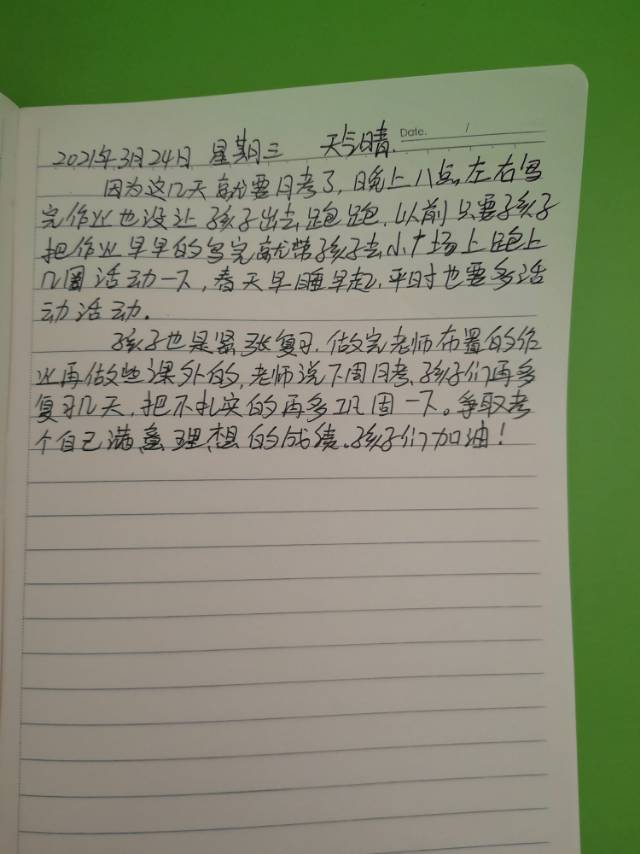 Date.      /
2021年3月24日 星期三 天气晴.
因为这几天就要月考了,晚上八点左右写
完作业也没让孩子出去跑跑,以前只要孩子
把作业早早的写完就带孩子去小广场上跑上
几圈活动一下,春天早睡早起,平时也要多活
动活动.
孩子也是紧张复习.做完老师布置的作
业再做些课外的,老师说下周月考,孩子们再多
复习几天,把不扎实的再多巩固一下。争取考
个自己满意理想的成绩.孩子们加油!